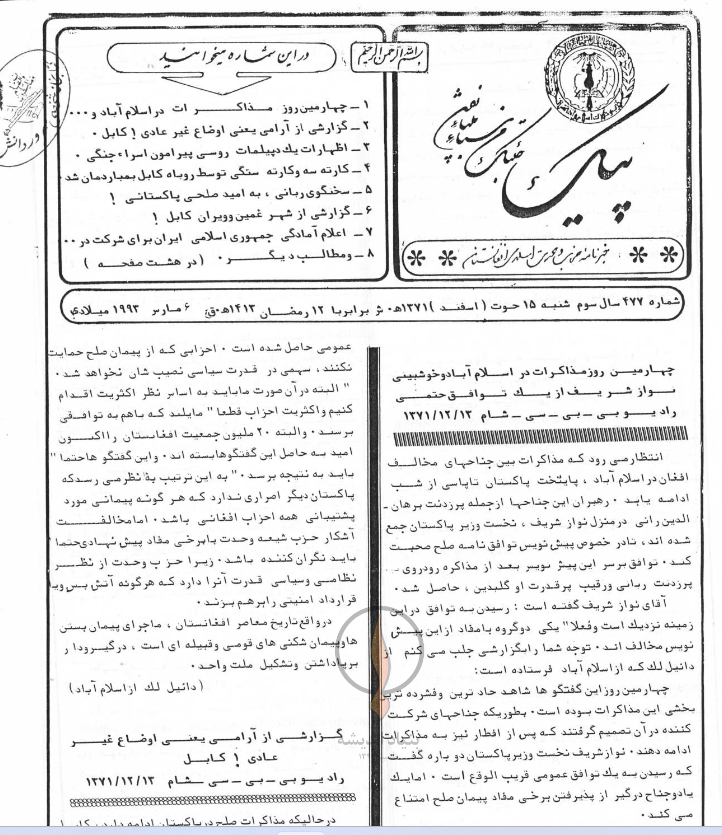 بسم الله الرحمن الرحیم
پیک
خبرنامه حزب وحدت اسلامی افغانستان
در این شماره میخوانید
۱ ـ چهارمین روز مذاکرات در اسلام آباد و ۰۰۰
۲ ـ گزارشی از آرامی یعنی اوضاع غیر عادی ! کابل ۰
۳ ـ اظهارات یك دیپلمات روسی پیرامون اسراء جنگی ۰
۴ ـ کارته سه وکارته سنگی توسط روباه کابل بمباردمان شد ۰
۵ ـ سخنگوی ربانی ، به امید صلحی پاکستانی !
۶ ـ گزارشی از شهر غمین وویران کابل !
۷ ـ اعلام آمادگی جمهوری اسلامی ایران برای شرکت در ۰۰
۸ ـ ومطالب دیگر ۰ ( در هشت صفحه )
شماره ۴۷۷ سال سوم شنبه ۱۵ حوت ( اسفند ) ۱۳۷۱ه۰ ش برابر با ۱۲ رمضان ۱۴۱۳ه۰ق ۶ مارس ۱۹۹۳ میلادی
چهارمین روز مذاکرات در اسلام آباد وخوشبینی
نواز شریف از یك توافق حتمی
رادیو بی ـ بی ـ سی ـ شام ۱۳۷۱/۱۲/۱۳
انتظار می رود که مذاکرات بین جناحهای مخالف
افغان در اسلام آباد ، پایتخت پاکستان تاپاسی از شب
ادامه یابد ۰ رهبران این جناحها ازجمله پرزدنت برهان ـ
الدین ربانی درمنزل نواز شریف ، نخست وزیر پاکستان جمع
شده اند ، تادر خصوص پیش نویس توافق نامه صلح صحبت
کنند ۰ توافق برسر این پیش نویس بعد از مذاکره رودروی ـ
پرزدنت ربانی ورقیب پرقدرت او گلبدین ، حاصل شد ۰
آقای نواز شریف گفته است : رسیدن به توافق دراین
زمینه نزدیك است وفعلا" یکی دوگروه بامفاد ازاین پیش
نویس مخالف اند ۰ توجه شما رابگزارشی جلب می کنم از
دانیل لك که از اسلام آباد فرستاده است :
چهارمین روز این گفتگو ها شاهد حاد ترین وفشرده ترین
بخشی این مذاکرات بوده است ۰ بطوریکه جناحهای شرکت
کننده در آن تصمیم گرفتند که پس از افطار نیز به مذاکرات
ادامه دهند ۰ نوازشریف نخست وزیر پاکستان دو باره گفت
که رسیدن به یك توافق عمومی قریب الوقع است ۰ امایك
یادوجناح درگیر از پذیرفتن برخی مفاد پیمان صلح امتناع
می کند ۰
عمومی حاصل شده است ۰ احزابی که از پیمان صلح حمایت
نکنند ، سهمی در قدرت سیاسی نصیب شان نخواهد شد ۰
" البته در آن صورت ماباید به اساس نظر اکثریت اقدام
کنیم واکثریت احزاب قطعا " مایلند که باهم به توافقی
برسند ۰ والبته ۲۰ ملیون جمعیت افغانستان را اکنون
امید به حاصل این گفتگوهابسته اند ۰ واین گفتگو هاحتما "
باید به نتیجه برسد ۰ " به این ترتیب بهٔ نظر می رسد که
پاکستان دیگر اصراری ندارد که هر گونه پیمانی مورد
پشتیبانی همه احزاب افغانی باشد ۰ امامخالفت
آشکار حزب شیعه وحدت بابرخی مفاد پیش نهادی حتما "
باید نگران کننده باشد ۰ زیرا حزب وحدت از نظر
نظامی وسیاسی قدرت آنرا دارد که هرگونه آتش بس ویا
قرارداد امنیتی رابرهم بزند ۰
درواقع تاریخ معاصر افغانستان ، ماجرای پیمان بستن
هاوپیمان شکنی های قومی وقبیله ای است ، درگیرودار
برپاداشتن وتشکیل ملت واحد ۰
( دانیل لك از اسلام آباد )
گزارشی از آرامی یعنی اوضاع غیر
عادی ! کابل
رادیو بی ـ بی ـ سی ـ شام ۱۳۷۱/۱۲/۱۳
درحالیکه مذاکرات صلح درپاکستان ادامه دارد ، کابل
بنیاد اندیشه